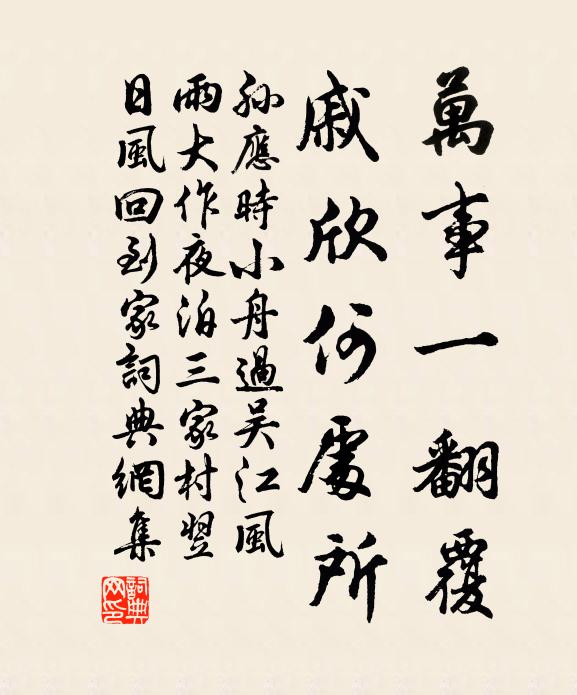 萬事一翻覆
戚欣何處所
孫應時小舟過吴江風
雨大作夜泊三家村翌
日風回到家詞典網集
詞典
网印